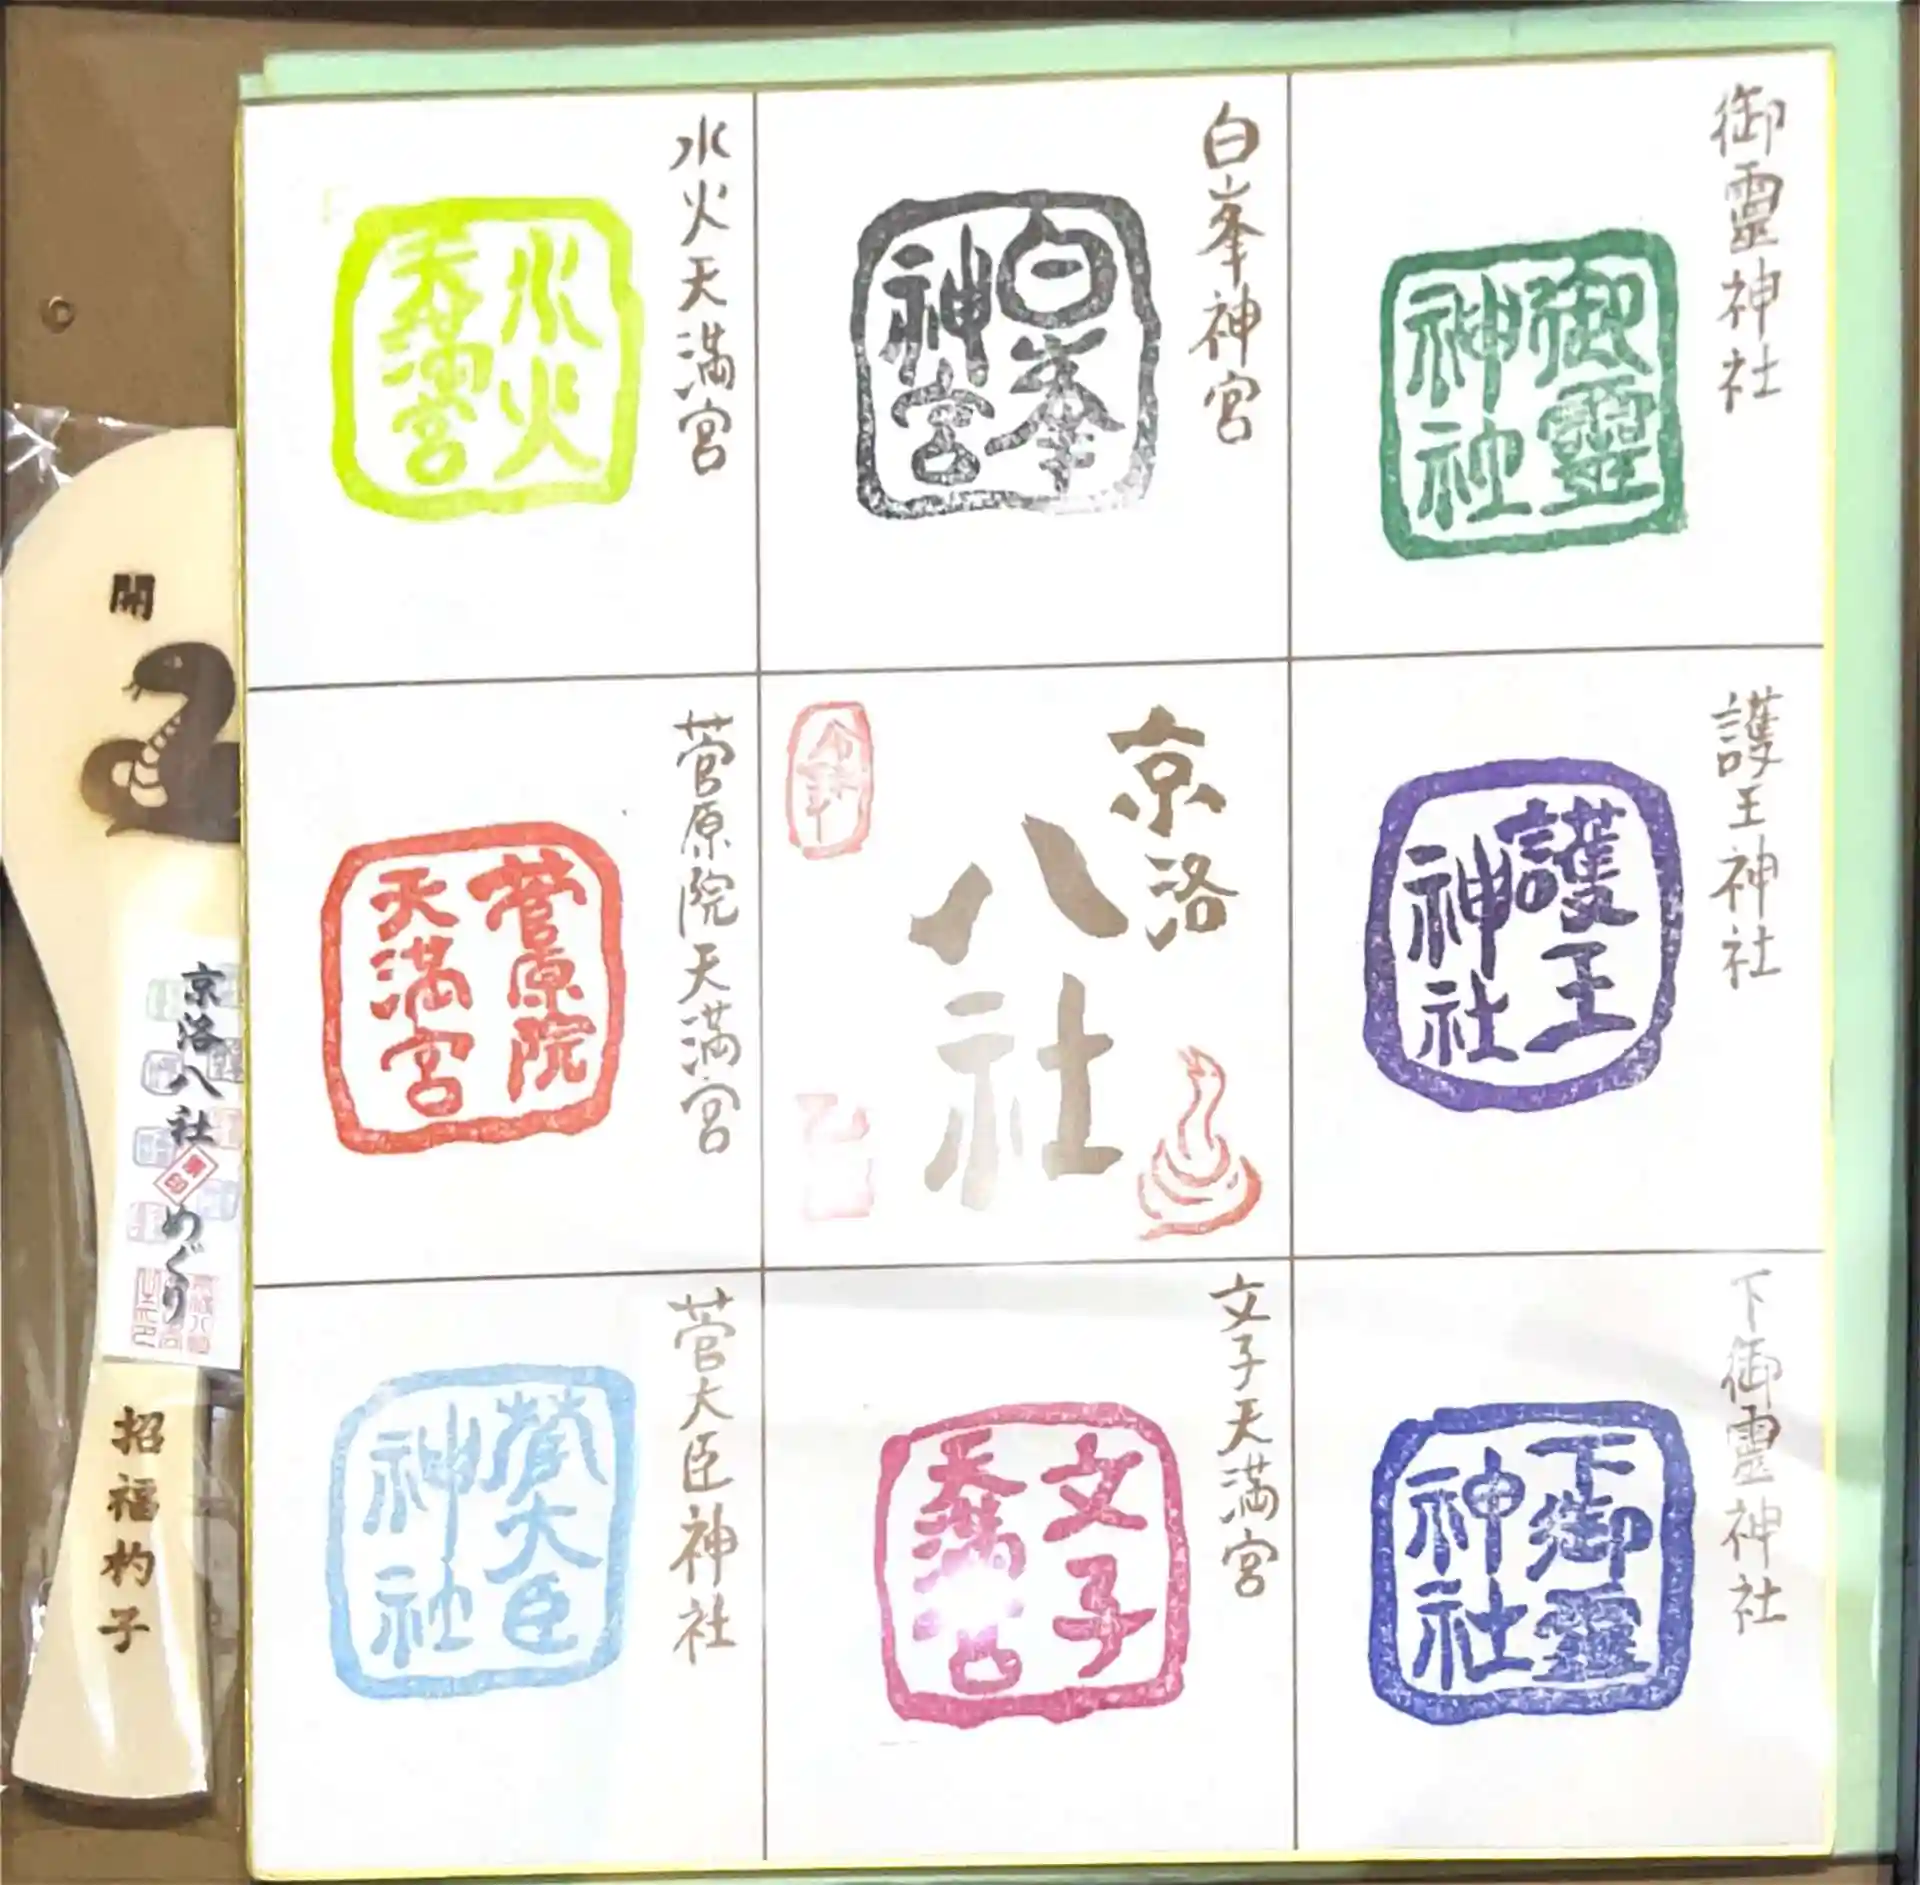 御霊神社
御靈
神社
白峯神宮
白峯
神宮
水火天満宮
水火
天満宮
護王神社
護王
神社
京洛
八社
菅原院天満宮
菅原院
天満宮
下御霊神社
下御靈
神社
文子天満宮
文子
天満宮
菅大臣神社
菅大臣
神社
開
京洛八社
めぐり
招福杓子